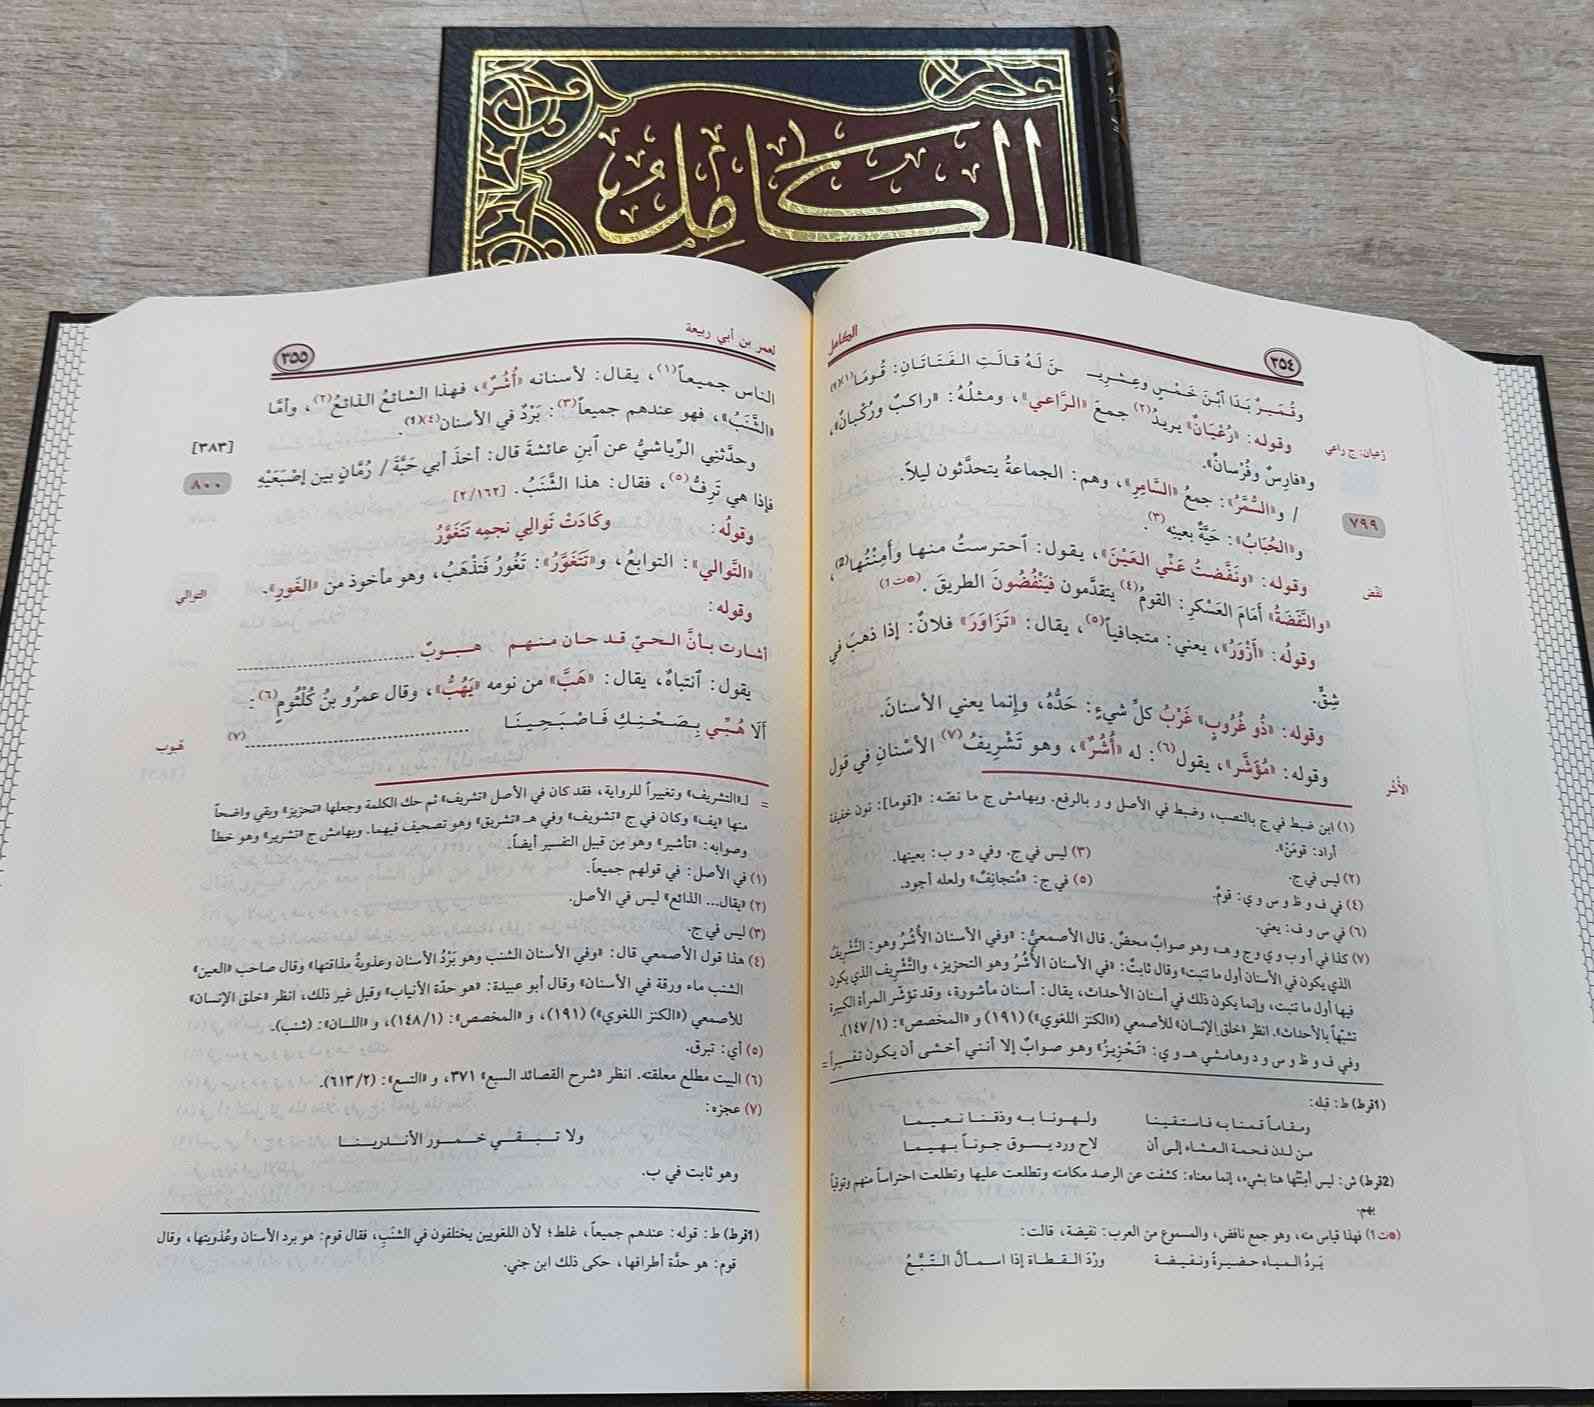 الكامل
الكامل
٣٥٤
وقُمَيرٌ بَدَا ٱبْنَ خَمْسٍ وعِشْريـ ـنَ لَهُ قالَتِ الفَتَاتَانِ: قُومَا(١)(١)
وقوله: «رُعْيَانٌ» يريدُ(٢) جمعَ «الرَّاعي»، ومثلُهُ: «راكبٌ ورُكْبانٌ»،
رُعيان: ج راعي
و«فارسٌ وفُرْسانٌ».
/ و«السُّمَّرُ»: جمعُ «السَّامِرِ»، وهم: الجماعةُ يتحدَّثون ليلاً.
٧٩٩
و«الحُبَابُ»: حَيَّةٌ بعينِه(٣).
وقوله: «ونَفَّضتُ عَنِّي العَيْنَ»، يقول: ٱحترستُ منها وأَمِنْتُها(2)،
نفض
«والنَّفَضَةُ» أمَامَ العَسْكَرِ: القومُ(٤) يتقدَّمون فيَنْفُضُونَ الطريقَ. (ﻫت1)
وقولُه: «أَزْوَرُ»، يعني: متجافياً(٥)، يقال: «تَزَاوَرَ» فلانٌ: إذا ذهبَ في
شِقٍّ.
وقوله: «ذُو غُرُوبٍ» غَرْبُ كلِّ شيءٍ: حَدُّهُ، وإنما يعني الأسنانَ.
وقوله: «مُؤَشَّر»، يقول(٦): له «أُشُرٌ»، وهو تَشْرِيفُ(٧) الأسْنانِ في قول
الأُشُر
(١) ابن ضبط في ج بالنصب، وضبط في الأصل و ر بالرفع. وبهامش ج ما نصّه: «[قوما]: نون خفيفة
أراد: قومَنْ».
(٢) ليس في ج. (٣) ليس في ج. وفي د و ب: بعينها.
(٤) في ف و ظ و س و ي: قومٌ. (٥) في ج: «مُتجانِفٌ» ولعله أجود.
(٦) في س و ف: يعني.
(٧) كذا في أ و ب و ي و ج و هـ، وهو صوابٌ محضٌ. قال الأصمعيُّ: «وفي الأسنان الأُشُرُ وهو: التَّشْرِيفُ
الذي يكون في الأسنان أول ما تنبت» وقال ثابتٌ: «في الأسنان الأُشُرُ وهو التحزيز، والتَّشْرِيف الذي يكون
فيها أول ما تنبت، وإنما يكون ذلك في أسنان الأحداث، يقال: أسنان مأشورة، وقد تؤشّر المرأة الكبيرة
تشبُّهاً بالأحداث». انظر «خلق الإنسان» للأصمعي («الكنز اللغوي») (١٩١) و «المخصص»: (١٤٧/١).
وفي ف و ظ و س و د وهامشي هـ و ي: «تَحْزِيزُ» وهو صوابٌ إلا أنني أخشى أن يكون تفسيراً =
(1قرط) ط: قبله:
ومقاماً قمنا به فاستقينا ولهونا به وذقنا نعيما
من لدن فحمة العشاء إلى أن لاح ورد يسوق جوناً بهيما
(2قرط) ش: ليس أمِنْتُها هنا بشيء، إنما معناه: كشفت عن الرصد مكامنه وتطلعت عليها وتطلعت احتراساً منهم وتوقياً
بهم.
(ﻫت1) فهذا قياس منه، وهو جمع نافض، والمسموع من العرب: نفيضة، قالت:
يَردُ المياه حضيرةً ونفيضة ورْدَ القطاة إذا اسمألَّ التّبَّعُ
لعمر بن أبي ربيعة
٣٥٥
الناس جميعاً(١)، يقال: لأسنانه «أُشُرٌ»، فهذا الشائعُ الذائعُ(٢)، وأمَّا
«الشَّنَبُ»، فهو عندهم جميعاً(٣): بَرْدٌ في الأسنان(٤)(1).
[٣٨٣]
وحدَّثني الرِّياشيُّ عن ٱبنِ عائشةَ قال: أخذَ أبي حَبَّةَ / رُمَّانٍ بين إصْبَعَيْهِ
٨٠٠
فإذا هي تَرِفُّ(٥)، فقال: هذا الشَّنَبُ. [٢/١٦٢]
وقولُه: وكَادَتْ تَوالِي نجمِه تَتَغَوَّرُ
«التَّوالي»: التوابعُ، و«تَتَغَوَّرُ»: تَغُورُ فَتَذْهَبُ، وهو مأخوذ من «الغَورِ».
التوالي
وقوله:
أشارت بأنَّ الحيّ قد حان منهم هبوبٌ
يقول: ٱنتباهٌ، يقال: «هَبَّ» من نومه «يَهُبُّ»، وقال عمرُو بنُ كُلْثُومٍ(٦):
ألَا هُبِّي بِصَحْنِكِ فَاصْبَحِينَا (٧)
= لـ«التشريف» وتغييراً للرواية، فقد كان في الأصل «تشريف» ثم حك الكلمة وجعلها «تحزيز» وبقي واضحاً
منها «يف» وكان في ج «تشويف» وفي هـ «تشريق» وهو تصحيف فيهما. وبهامش ج «تشرير» وهو خطأ
وصوابه: «تأشير» وهو من قبيل التفسير أيضاً.
(١) في الأصل: في قولهم جميعاً.
(٢) «يقال... الذائع» ليس في الأصل.
(٣) ليس في ج.
(٤) هذا قول الأصمعي قال: «وفي الأسنان الشنب وهو بَرْدُ الأسنان وعذوبةُ مذاقتها» وقال صاحب «العين»
الشنب ماء ورقة في الأسنان» وقال أبو عبيدة: «هو حدّة الأنياب» وقيل غير ذلك، انظر «خلق الإنسان»
للأصمعي («الكنز اللغوي») (١٩١)، و «المخصص»: (١٤٨/١)، و «اللسان»: (شنب).
(٥) أي: تبرق.
(٦) البيت مطلع معلقته. انظر «شرح القصائد السبع» ٣٧١، و «التسع»: (٦١٣/٢).
(٧) عجزه:
ولا تبقي خمور الأندرينا
وهو ثابت في ب.
(1قرط) ط: قوله: عندهم جميعاً، غلط؛ لأن اللغويين يختلفون في الشنَبِ، فقال قوم: هو برد الأسنان وعُذوبتها، وقال
قوم: هو حدَّة أطرافها، حكى ذلك ابن جني.